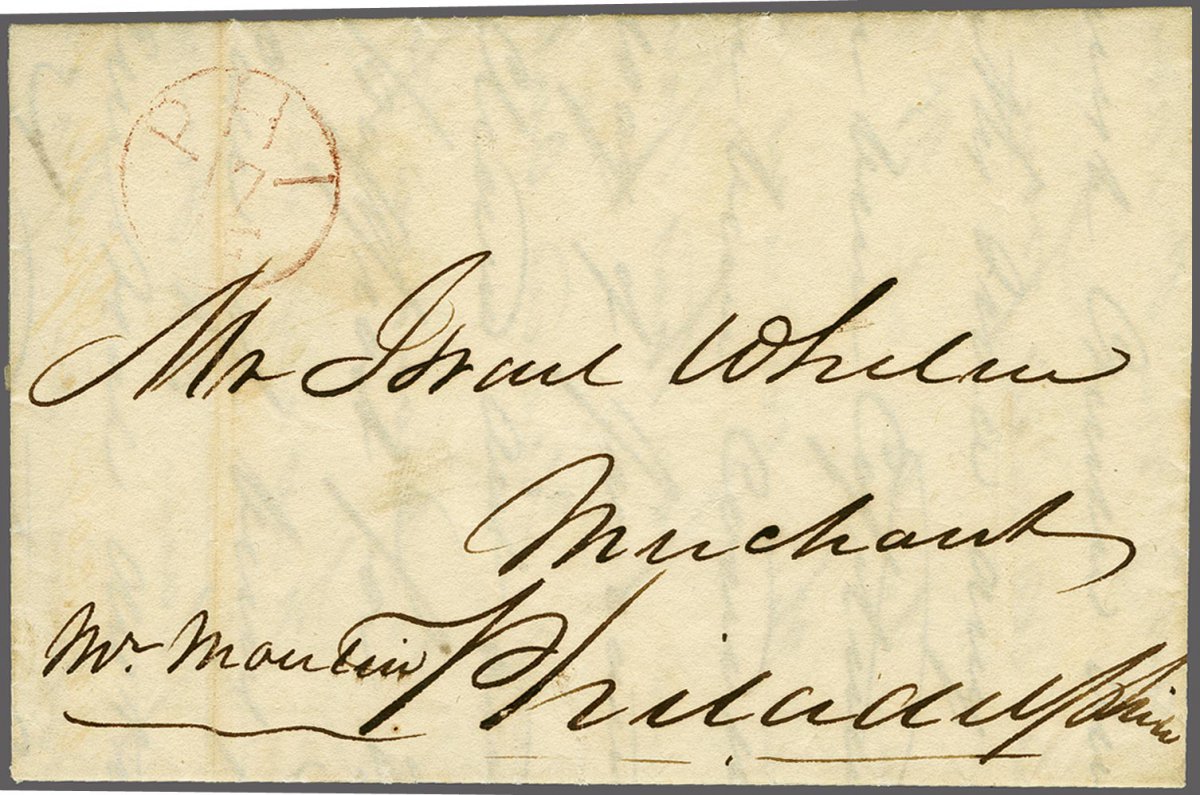 PHI
17
Mr Israel Whelen
Merchant
Mr. Martin
Philadelphia